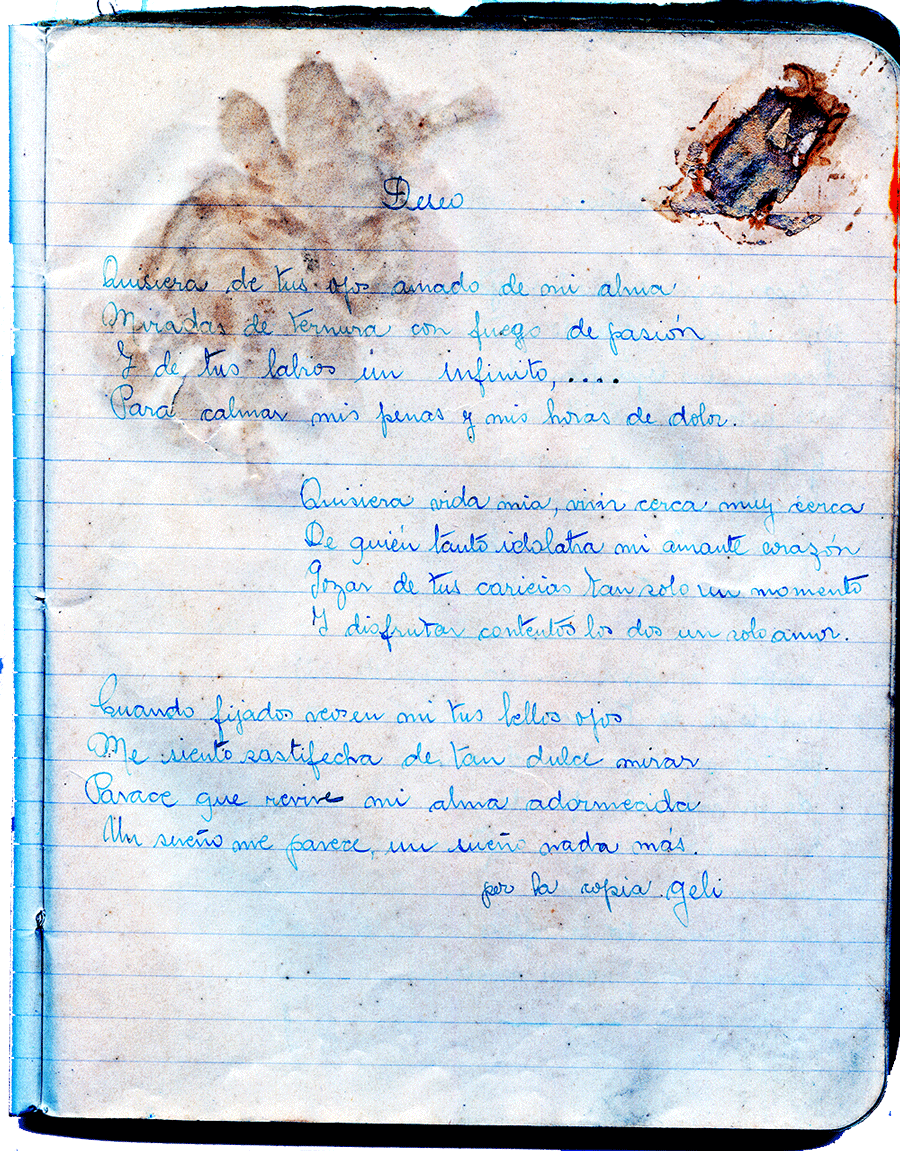 Deseo
Quisiera de tus ojos amado de mi alma
Miradas de ternura con fuego de pasión
Y de tus labios ún infinito,....
Para calmar mis penas y mis horas de dolor.
Quisiera vida mia, vivir cerca muy cerca
De quién tanto idolatra mi amante corazón
Gozar de tus caricias tan solo un momento
Y disfrutar contentos los dos un solo amor.
Cuando fijados veo en mi tus bellos ojos
Me siento sastifecha de tan dulce mirar
Parace que revive mi alma adormecida
Un sueño me parece, un sueño nada más.
por la copia geli